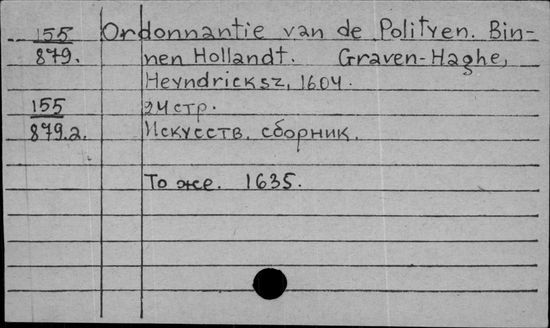 155 Ordonnantie van de Politÿen. Bin-
879. nen Hollandt. Graven-Haghe,
Heyndricksz, 1604.
155 24 стр.
879.2. Искусств. сборник.
То же. 1635.